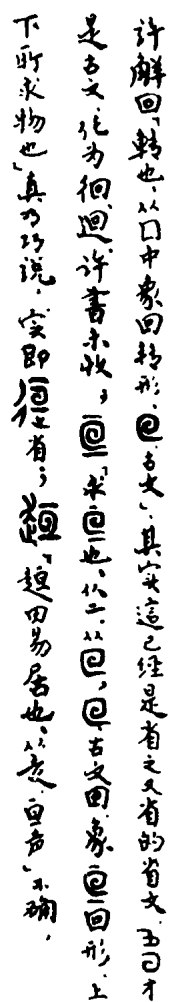 许解回「转也、从囗中象回转形、𠚃古文」、其实这已经是省之又省的省文、才
是古文、化为徊、迴、许书未收；亘「求亘也、从二、从囘，囘古文回、象亘回形、上
下所求物也」真乃巧说、实即文省；趄「趄田易居也、从走、亘声」不确，